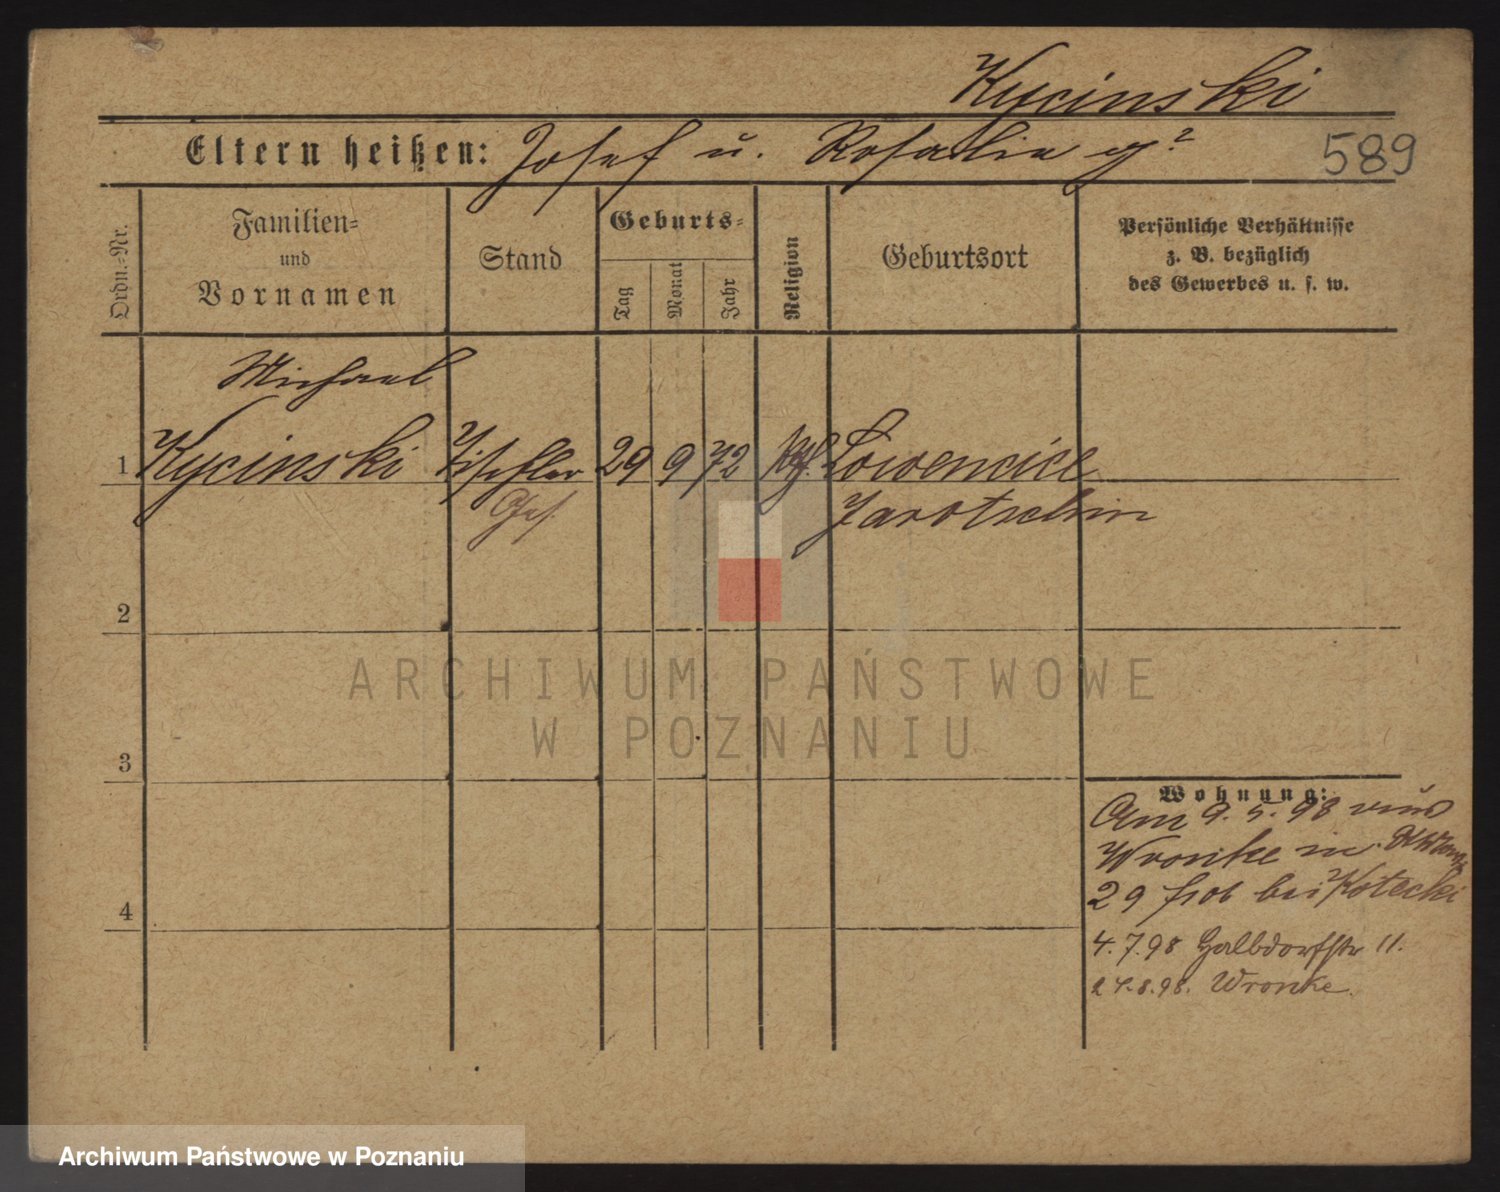 Kycinski
Eltern heißen: Josef u. Rosalie g?
589
Ordn.-Nr.
Familien-
und
Vornamen
Stand
Geburts-
Tag
Monat
Jahr
Religion
Geburtsort
Persönliche Verhältnisse
z. B. bezüglich
des Gewerbes u. s. w.
Michael
1 Kycinski Tischler 29 9 72 Kth. Lowencice
Ges. Jarotschin
2
ARCHIWUM PAŃSTWOWE
W POZNANIU
3
Wohnung:
Am 9.5.98 aus
Wronke in
29 bei Kotecki
4
4.7.98 Halbdorfstr 11.
24.8.98. Wronke.
Archiwum Państwowe w Poznaniu